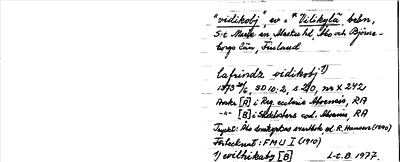 "vidikobj", ev. = "Vilikylä behn,
S:t Marie sn, Masku hd, Åbo och Björne-
borgs län, Finland
lafrindz vidikobj 1)
1373 20/6, SD 10:2, s 210, nr X 242
Avskr [A] i Reg. ecclesie Aboensis, RA
-"- [B] i Skoklosters cod. Aboensis, RA
Tryckt: Åbo domkyrkas svartbok, ed. R. Hausen (1890)
Förtecknat: FMU I (1910)
1) vilhikaby [B] L-e. B. 1977.